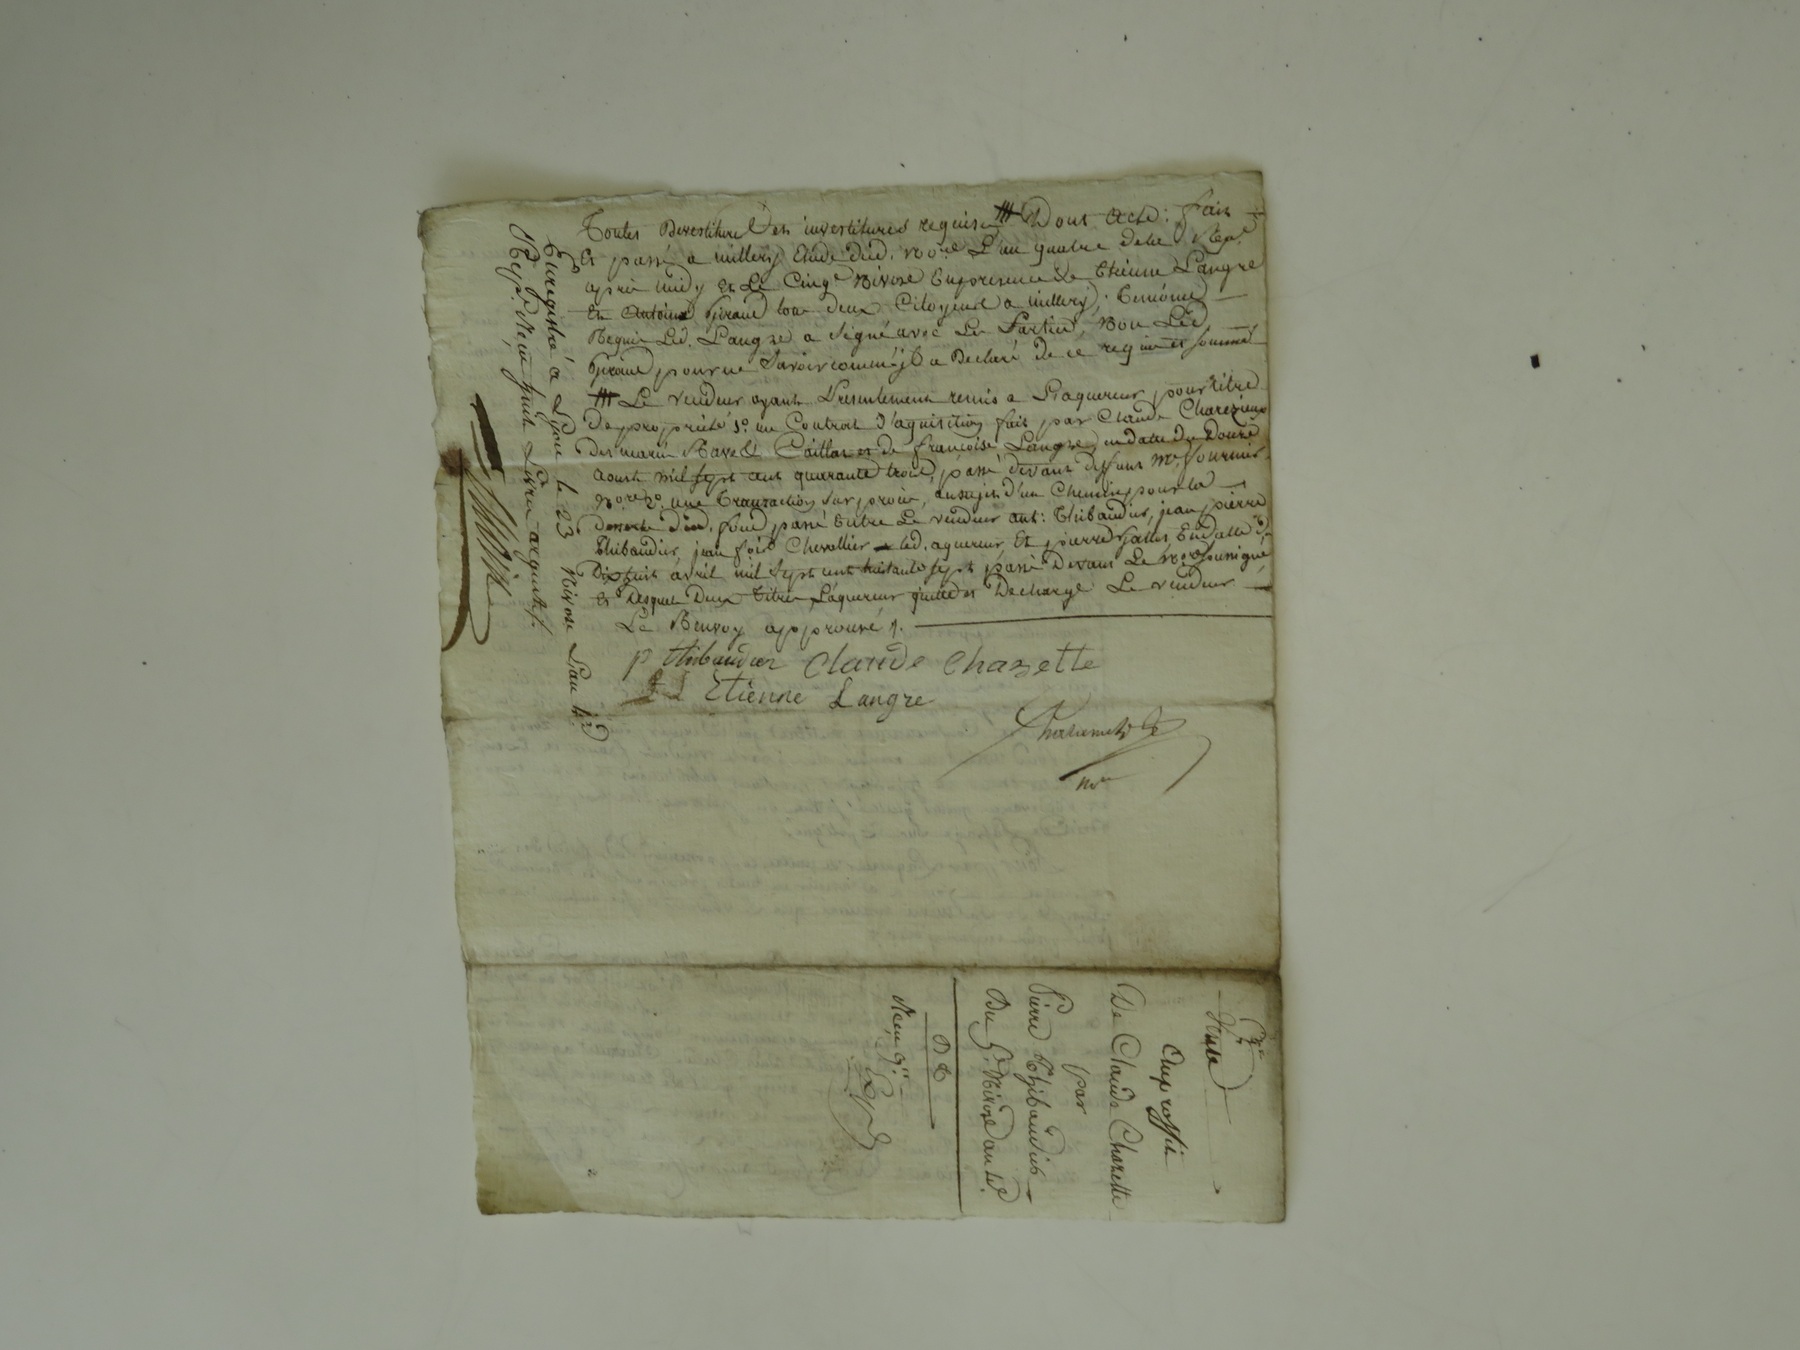 Toutes Devestitures et investitures requises ## Dont Acte: fait
Et passé a millery Etude dud. no.re L'an quatre de la Rep.e
après midy et Le Cinq.e Nivose En presence de Etienne Langre
Et Antoine Giraud tous deux Citoyens a millery, Temoins
Requis Led. Langre a signé avec Les Parties, Non Led.
Giraud pour ne Savoir comme jl a Declaré de ce requis et sommé
## Le vendeur ayant Presentement remis a L'aquereur pour titre
De proprieté 1.o un Contrat d'aquisition fait par Claude
Des mariés et de françoise Langre, en datte du Douze
aoust mil sept cent quarante trois, passé devant deffunt M.e fournier
no.re 2.o une Transaction Sur procès, au sujet d'un Chemin pour la
desserte dud. fond passé Entre Le vendeur ant: Thibaudier, jean pierre
Thibaudier, jean Chevallier led. aquereur Et pierre En datte du
Dixhuit avril mil sept cent huitante sept passé Devant Le No.re soussigné
Et Desquels Deux titres L'aquereur quitte et Decharge Le vendeur
Le Renvoy approuvé /.
p thibaudier Claude Chazette
Etienne Langre
no.re
Enregistré à Lyon le 23 Nivose L'an 4.e
Reçu huit Livres
Vente
Au proffit
De Claude Chazette
par
Pierre Thibaudier
Du 5.e Nivose an 4.e